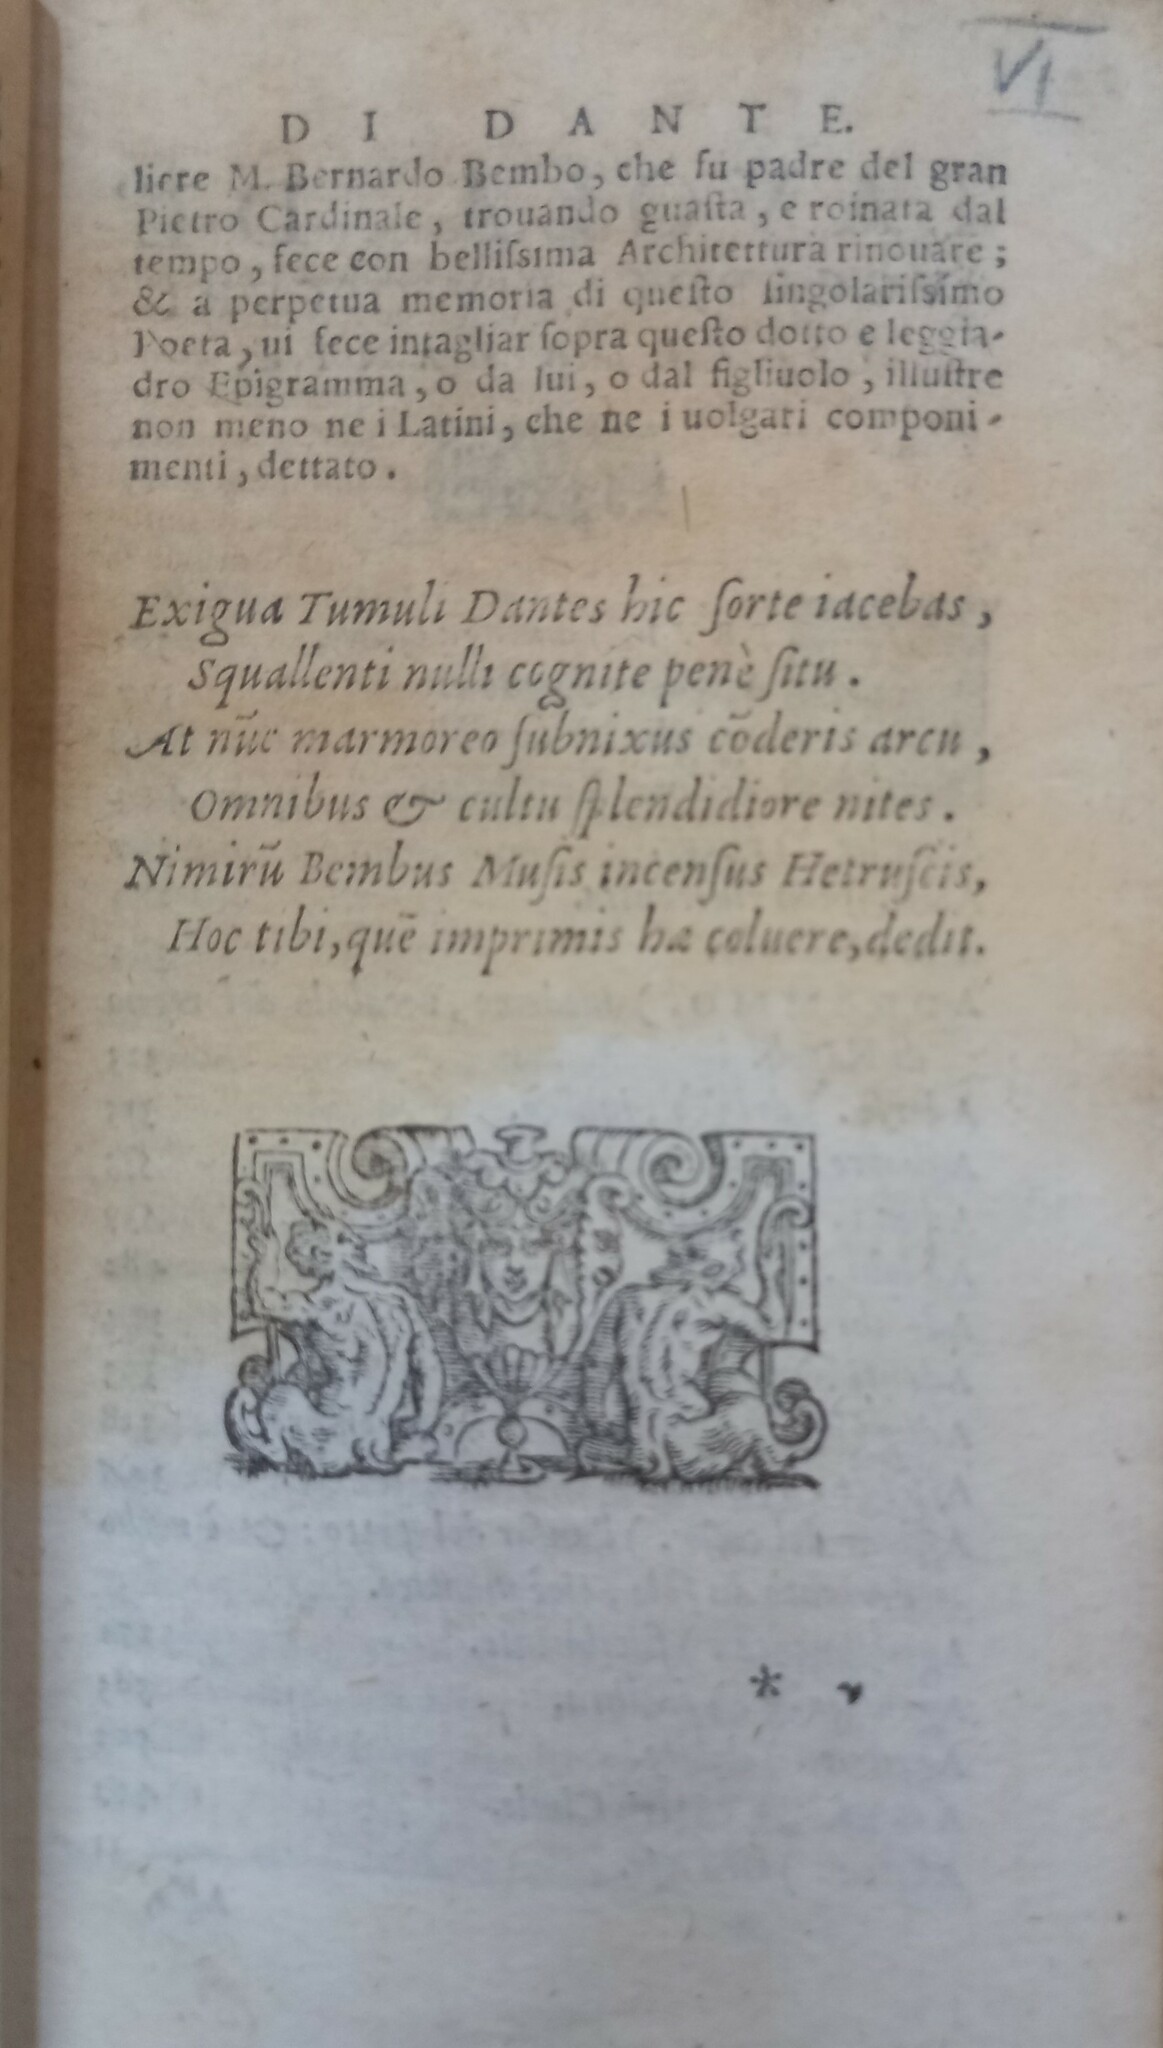 VI
DI DANTE.
liere M. Bernardo Bembo, che fu padre del gran
Pietro Cardinale, trouando guaſta, e roinata dal
tempo, fece con belliſsima Architettura rinouare;
& a perpetua memoria di queſto ſingolariſsimo
Poeta, ui fece intagliar ſopra queſto dotto e leggia-
dro Epigramma, o da lui, o dal figliuolo, illuſtre
non meno ne i Latini, che ne i uolgari componi-
menti, dettato.
Exigua Tumuli Dantes hic ſorte iacebas,
Squallenti nulli cognite penè ſitu.
At nũc marmoreo ſubnixus cõderis arcu,
Omnibus & cultu ſplendidiore nites.
Nimirũ Bembus Muſis incenſus Hetruſcis,
Hoc tibi, quẽ imprimis hæ coluere, dedit.
*